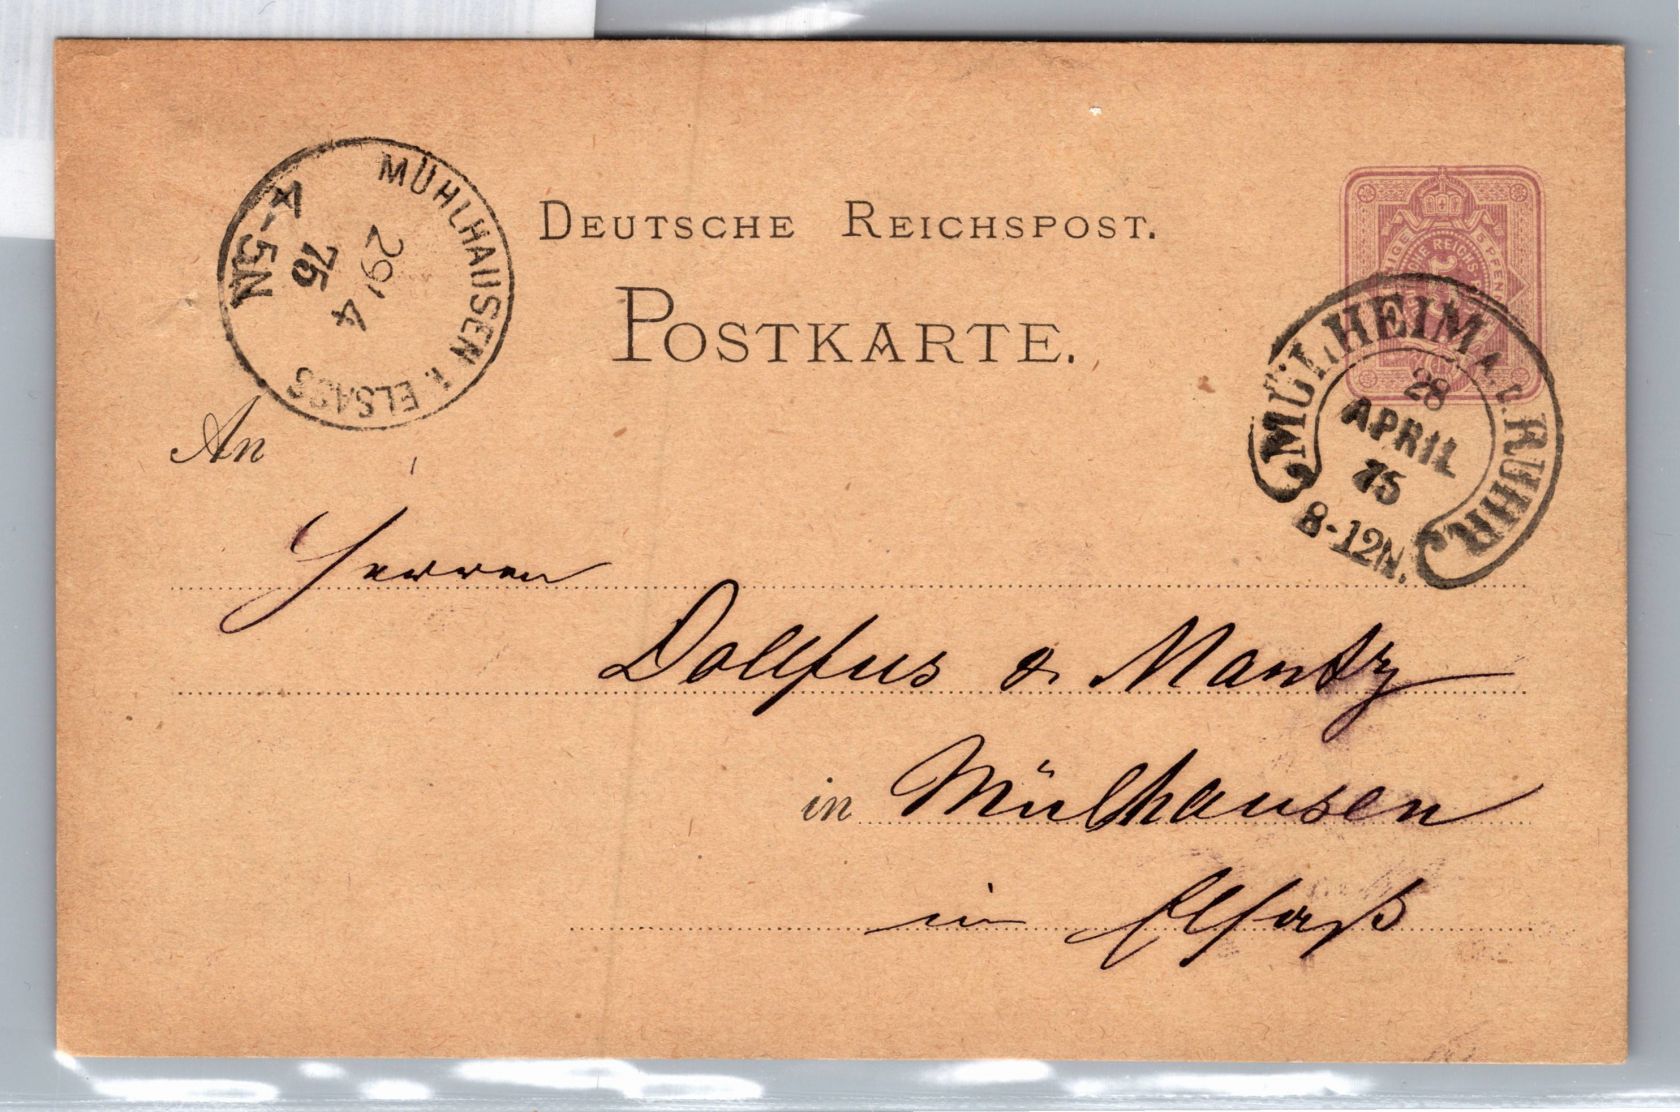 DEUTSCHE REICHSPOST.
POSTKARTE.
MÜHLHAUSEN I. ELSASS
29/4
75
4-5N
MÜLHEIM A. D. RUHR.
28
APRIL
75
8-12N.
An
Herren
Dollfus & Mantz
in Mülhausen
in Elsaß